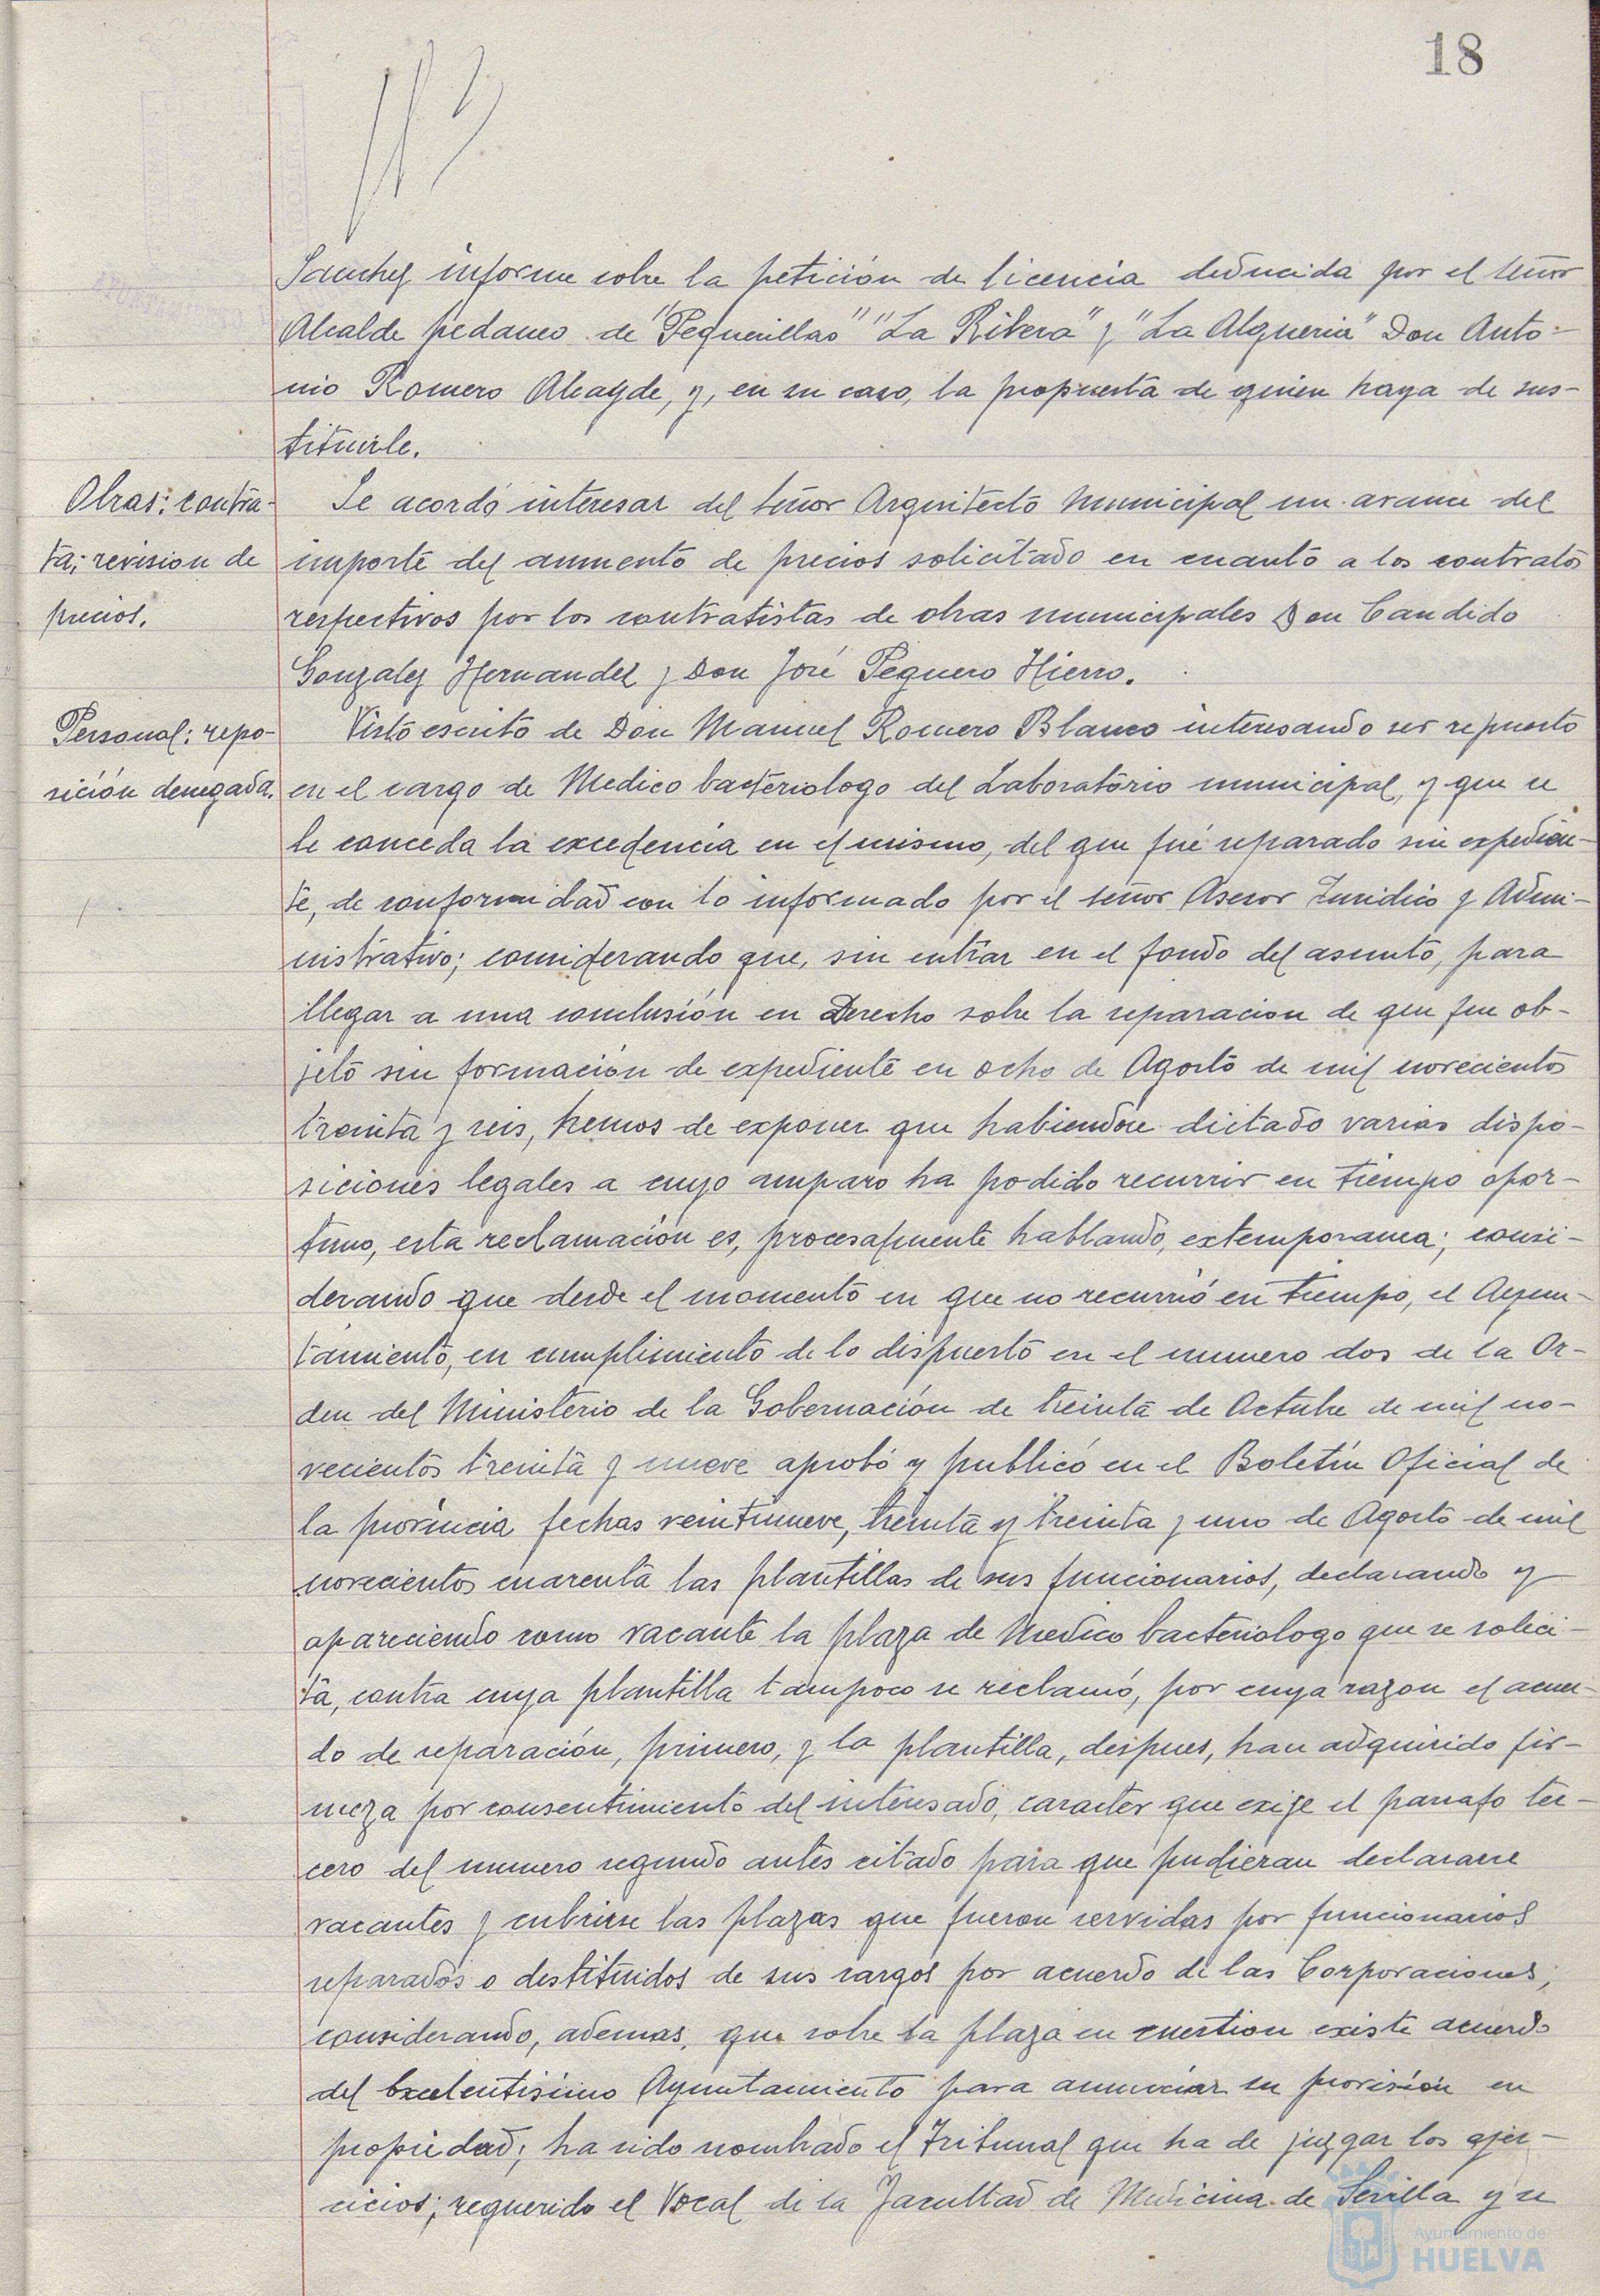 18
Sanchez informe sobre la petición de licencia deducida por el señor
Alcalde pedaneo de "Peguerillas" "La Ribera" y "La Alqueria" Don Anto-
nio Romero Alcayde, y, en su caso, la propuesta de quien haya de sus-
tituirle.
Obras: contra-
ta; revision de
precios.
Se acordó interesar del señor Arquitecto Municipal un avance del
importe del aumento de precios solicitado en cuanto a los contratos
respectivos por los contratistas de obras municipales Don Candido
Gonzalez Hernandez y Don José Peguero Hierro.
Personal: repo-
sición denegada.
Visto escrito de Don Manuel Romero Blanco interesando ser repuesto
en el cargo de Medico bacteriologo del Laboratorio municipal, y que se
le conceda la excedencia en el mismo, del que fué separado sin expedien-
te, de conformidad con lo informado por el señor Asesor Juridico y Admi-
nistrativo; considerando que, sin entrar en el fondo del asunto, para
llegar a una conclusión en Derecho sobre la separacion de que fue ob-
jeto sin formación de expediente en ocho de Agosto de mil novecientos
treinta y seis, hemos de exponer que habiendose dictado varias dispo-
siciones legales a cuyo amparo ha podido recurrir en tiempo opor-
tuno, esta reclamación es, procesalmente hablando, extemporanea; consi-
derando que desde el momento en que no recurrió en tiempo, el Ayun-
tamiento, en cumplimiento de lo dispuesto en el numero dos de la Or-
den del Ministerio de la Gobernación de treinta de Octubre de mil no-
vecientos treinta y nueve aprobó y publicó en el Boletín Oficial de
la provincia fechas veintinueve, treinta y treinta y uno de Agosto de mil
novecientos cuarenta las plantillas de sus funcionarios, declarando y
apareciendo como vacante la plaza de Medico bacteriologo que se solici-
ta, contra cuya plantilla tampoco se reclamó, por cuya razon el acuer-
do de separación, primero, y la plantilla, despues, han adquirido fir-
meza por consentimiento del interesado, caracter que exige el parrafo ter-
cero del numero segundo antes citado para que pudieran declararse
vacantes y cubrirse las plazas que fueron servidas por funcionarios
separados o destituidos de sus cargos por acuerdo de las Corporaciones;
considerando, ademas, que sobre la plaza en cuestion existe acuerdo
del Excelentisimo Ayuntamiento para anunciar su provisión en
propiedad; ha sido nombrado el Tribunal que ha de juzgar los ejer-
cicios; requerido el Vocal de la Facultad de Medicina de Sevilla y se
Ayuntamiento de
HUELVA